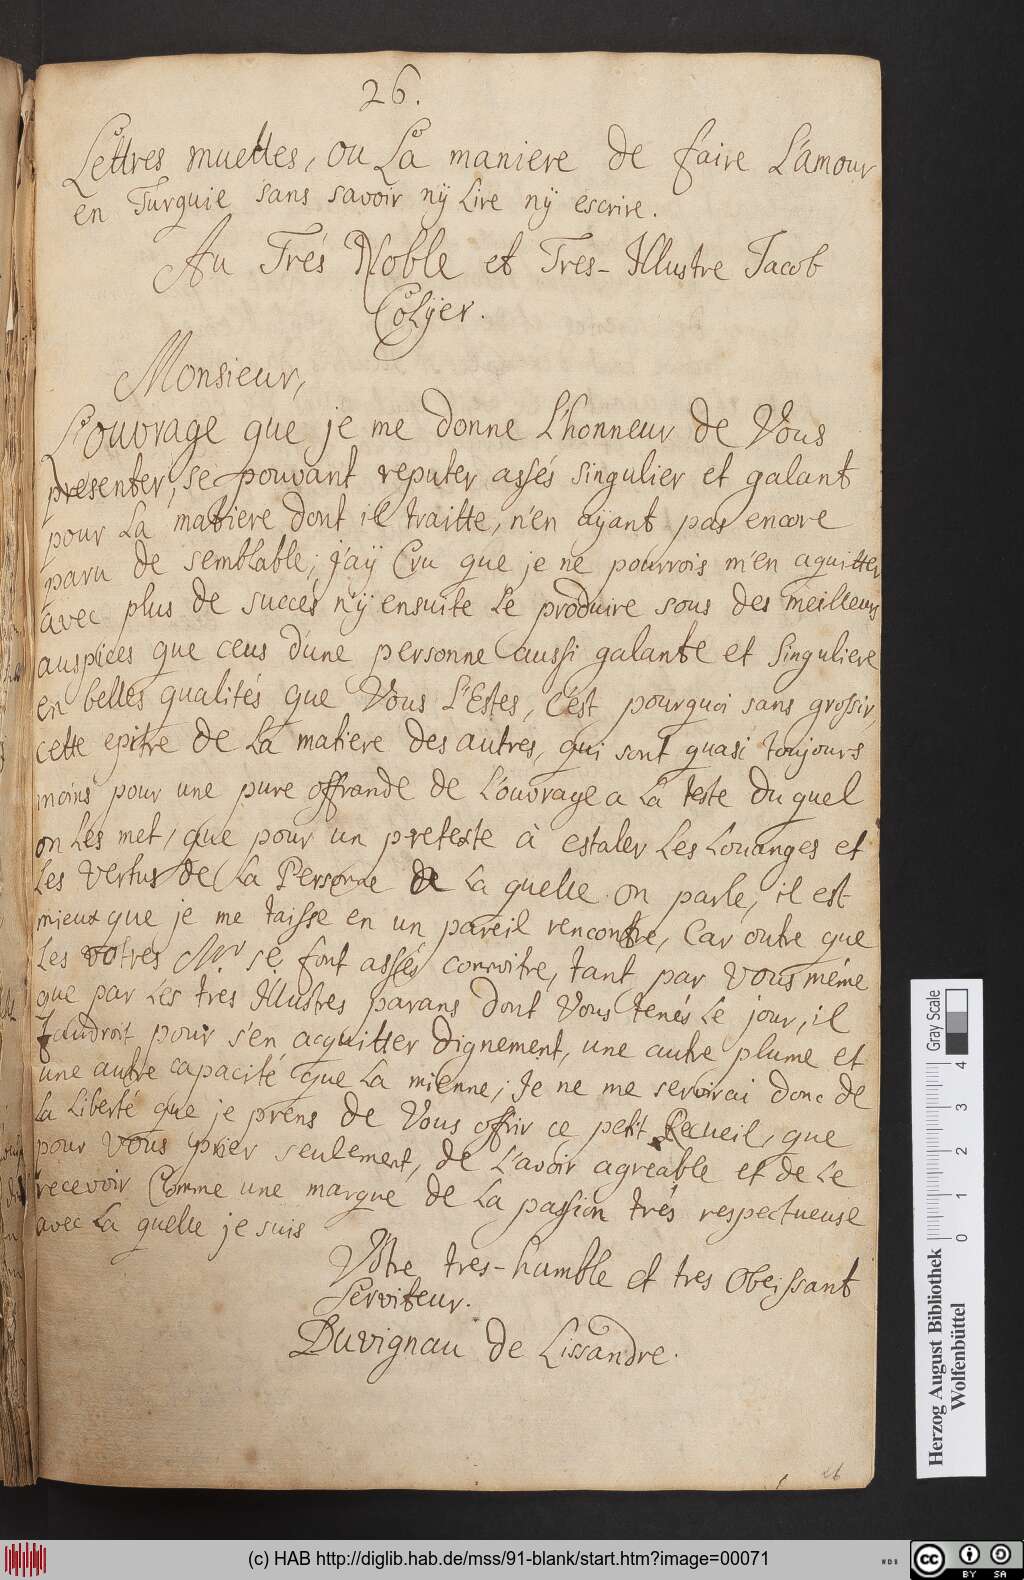 26.
Lettres muettes, ou La maniere de faire L'amour
en Turquie sans savoir nÿ Lire nÿ escrire.
Au Trés Noble et Tres-Illustre Jacob
Colÿer.
Monsieur,
L'ouvrage que je me donne L'honneur de Vous
presenter, se pouvant reputer assés singulier et galant
pour La matiere dont il traitte, n'en aÿant pas encore
paru de semblable; j'aÿ Cru que je ne pourrois m'en aquitter
avec plus de succés nÿ ensuite Le produire sous des meilleurs
auspices que ceus d'une personne aussi galante et singuliere
en belles qualités que Vous L'Estes, C'est pourquoi sans grossir,
cette epitre de La matiere des autres, qui sont quasi toujours
moins pour une pure offrande de L'ouvrage a La teste du quel
on Les met, que pour un pretexte à estaler Les Louanges et
Les vertus de La Personne de La quelle on parle, il est
mieux que je me taisse en un pareil rencontre, Car outre que
Les votres Mr se font assés connoitre, tant par vous méme
que par Les trés Illustres parans dont Vous tenés Le jour, il
faudroit pour s'en acquitter dignement, une autre plume et
une autre capacité que La mienne; Je ne me servirai donc de
La Liberté que je prens de Vous offrir ce petit Recueil, que
pour vous prier seulement, de L'avoir agreable et de Le
recevoir Comme une marque de La passion trés respectueuse
avec La quelle je suis
Vôtre tres-humble et tres Obeissant
Serviteur.
Duvignau de Lissandre.
26
Gray Scale
0 1 2 3 4
Herzog August Bibliothek
Wolfenbüttel
(c) HAB http://diglib.hab.de/mss/91-blank/start.htm?image=00071
WDB
cc BY SA